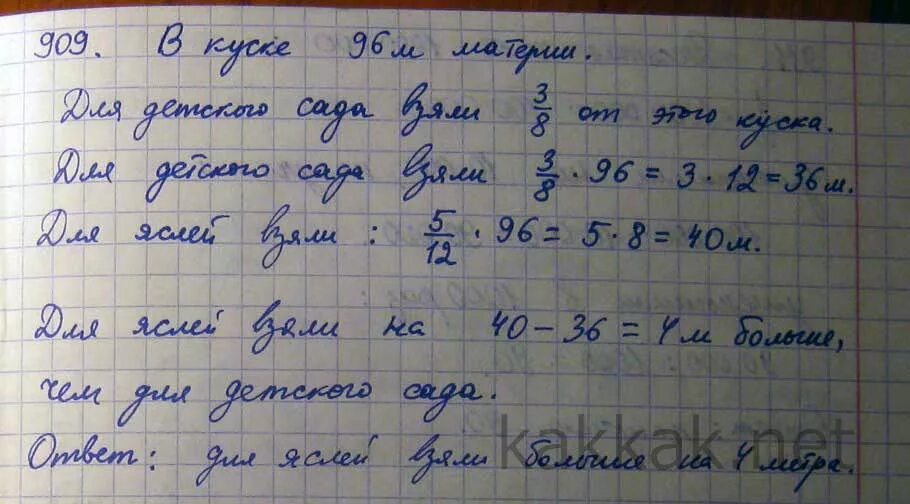 909. В куске 96м материи.
Для детского сада взяли 3/8 от этого куска.
Для детского сада взяли 3/8 · 96 = 3 · 12 = 36м.
Для яслей взяли : 5/12 · 96 = 5 · 8 = 40м.
Для яслей взяли на 40 - 36 = 4м больше,
чем для детского сада.
Ответ: для яслей взяли больше на 4 метра.
kakkak.net